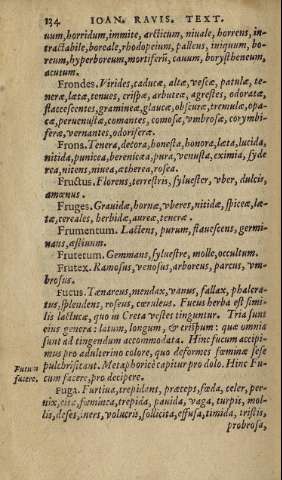 134 IOAN. RAVIS. TEXT.
uum, horridum, immite, arcticum, niuale, horrens, in-
tractabile, boreale, rhodopeium, palleus, iniquum, bo-
reum, hyperboreum, mortiferũ, canum, borystheneum,
acutum.
Frondes. Virides, caducæ, altæ, vescæ, patulæ, te-
neræ, lætæ, tenues, crispæ, arbuteæ, agrestes, odoratæ,
flauescentes, gramineæ, glaucæ, obscuræ, tremulæ, opa-
cæ, peruenustæ, comantes, comosæ, vmbrosæ, corymbi-
feræ, vernantes, odoriferæ.
Frons. Tenera, decora, honesta, honora, læta, lucida,
nitida, punicea, berenicæa, pura, venusta, eximia, syde
rea, nitens, niuea, ætherea, rosea.
Fructus. Florens, terrestris, syluester, vber, dulcis,
amœnus.
Fruges. Grauidæ, hornæ, vberes, nitidæ, spiceæ, læ-
tæ, cereales, herbidæ, aureæ, teneræ.
Frumentum. Lactens, purum, flauescens, germi-
nans, æstiuum.
Frutetum. Gemmans, syluestre, molle, occultum.
Frutex. Ramosus, venosus, arboreus, parcus, vm-
brosus.
Fucus. Tænareus, mendax, vanus, fallax, phalera-
tus, splendens, roseus, cœruleus. Fucus herba est simi-
lis lactucæ, quo in Creta vestes tinguntur. Tria sunt
eius genera: latum, longum, & crispum: quæ omnia
sunt ad tingendum accommodata. Hinc fucum accipi-
mus pro adulterino colore, quo deformes fœminæ sese
pulchrificant. Metaphoricè capitur pro dolo. Hinc Fu-
Fucum
facere.
cum facere, pro decipere.
Fuga. Furtiua, trepidant, præceps, fœda, celer, per-
nix, cita, fœminea, trepida, pauida, vaga, turpis, mol-
lis, deses, iners, volucris, sollicita, effusa, timida, tristis,
probrosa,